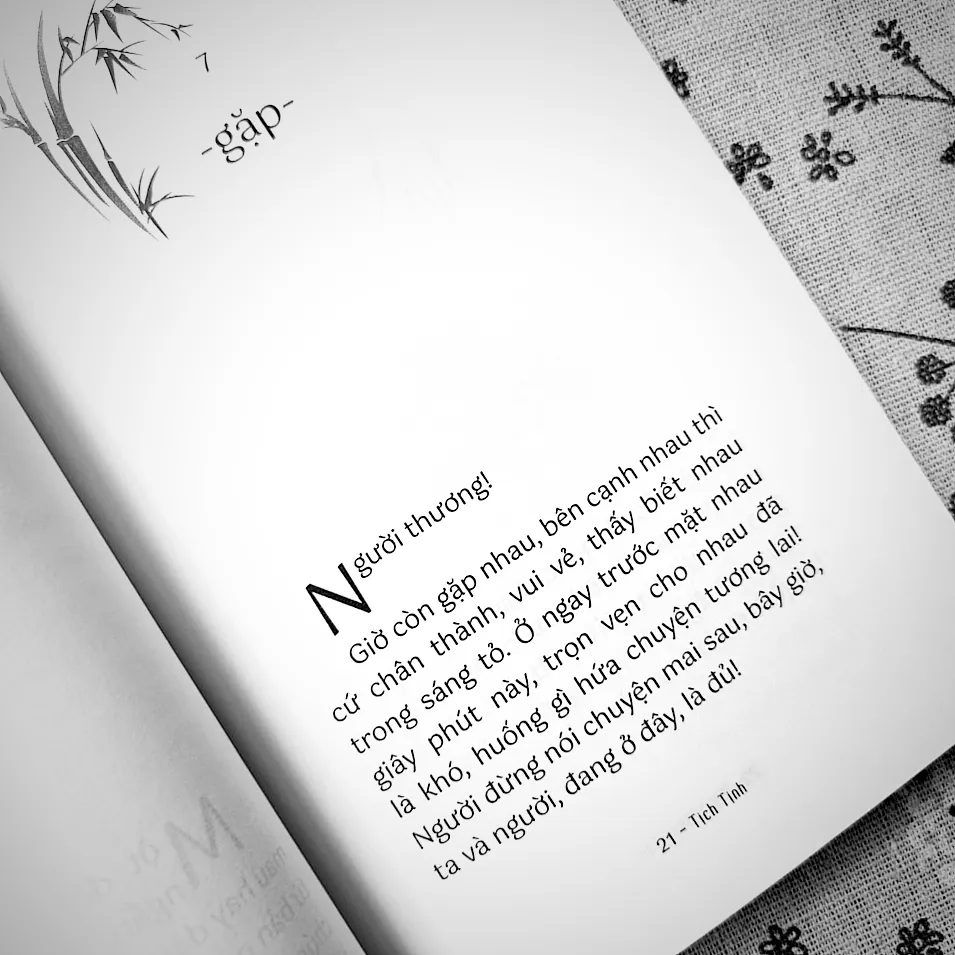 7
-gặp-
Người thương!
Giờ còn gặp nhau, bên cạnh nhau thì
cứ chân thành, vui vẻ, thấy biết nhau
trong sáng tỏ. Ở ngay trước mặt nhau
giây phút này, trọn vẹn cho nhau đã
là khó, huống gì hứa chuyện tương lai!
Người đừng nói chuyện mai sau, bây giờ,
ta và người, đang ở đây, là đủ!
21 - Tịch Tịnh